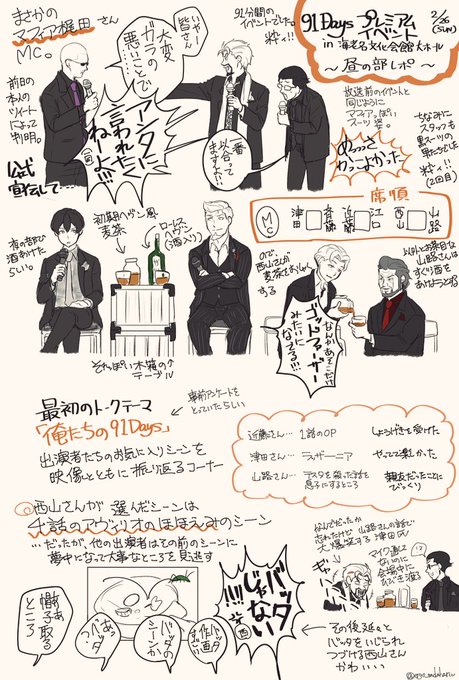 91Days プレミアム
イベント
2/26
(SUN)
in 海老名文化会館大ホール
〜昼の部レポ〜
まさかの
マフィア梶田さん
MC。
いやー
皆さん
大変
ガラの
悪いことで
アンタに
言われたく
ねーよ!!!
一番
似合って
ますよ!!
91分間の
イベントでした。
粋ィ!!
前日の
本人の
ツイート
によって
判明。
公式
宣伝して…
放送前のイベントと
同じように
マフィアっぽい
スーツ姿。
めっっさ
かっこよかった
ちなみに
スタッフも
黒スーツの
男たちでした
粋ィ!!
(2回目)
席順
MC
津田
斉藤
近藤
江口
西山
山路
夜の部も
酒あけてた
らしい。
初期ヘヴン風
麦茶
ローレス
ヘヴン
(酒入り)
それっぽい木箱の
テーブル
ので、
西山さんが
麦茶でお酌
する
なんかあそこだけ
ゴッドファーザー
みたいに
なってる!!!
意外とお茶目な
山路さんは
すぐ酒を
あけようとする
最初のトークテーマ
「俺たちの91Days」
事前アンケートを
とっていたらしい
出演者たちのお気に入りシーンを
映像とともに振り返るコーナー
近藤さん… 1話のOP しょうげきを受けた
津田さん… ラザーニア やってて楽しかった
山路さん…
親友だったことに
びっくり
西山さんが選んだシーンは
4話のアヴィリオのほほえみのシーン
…だったが、他の出演者はその前のシーンに
夢中になって大事なところを見逃す
帽子取る
ところ
あっ
バッタ
バッタの
シーンか
作画
すごい
バッタ
じゃない
!!!!
西
なんでだったか
忘れたけど山路さんの話で
大爆笑する津田氏
マイク通して
ないのに
会場中に
ひびき渡る
その後延々と
バッタをいじられ
つづける西山さん
かわいい